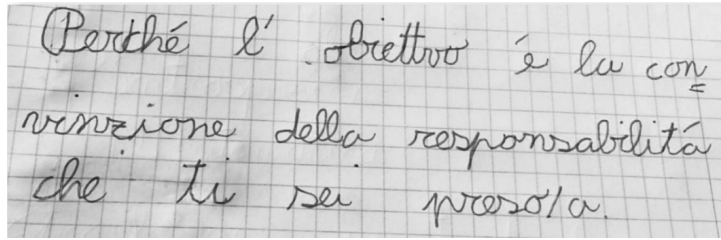 Perché l' obiettivo é la con=
vinzione della responsabilitá
che ti sei preso/a.